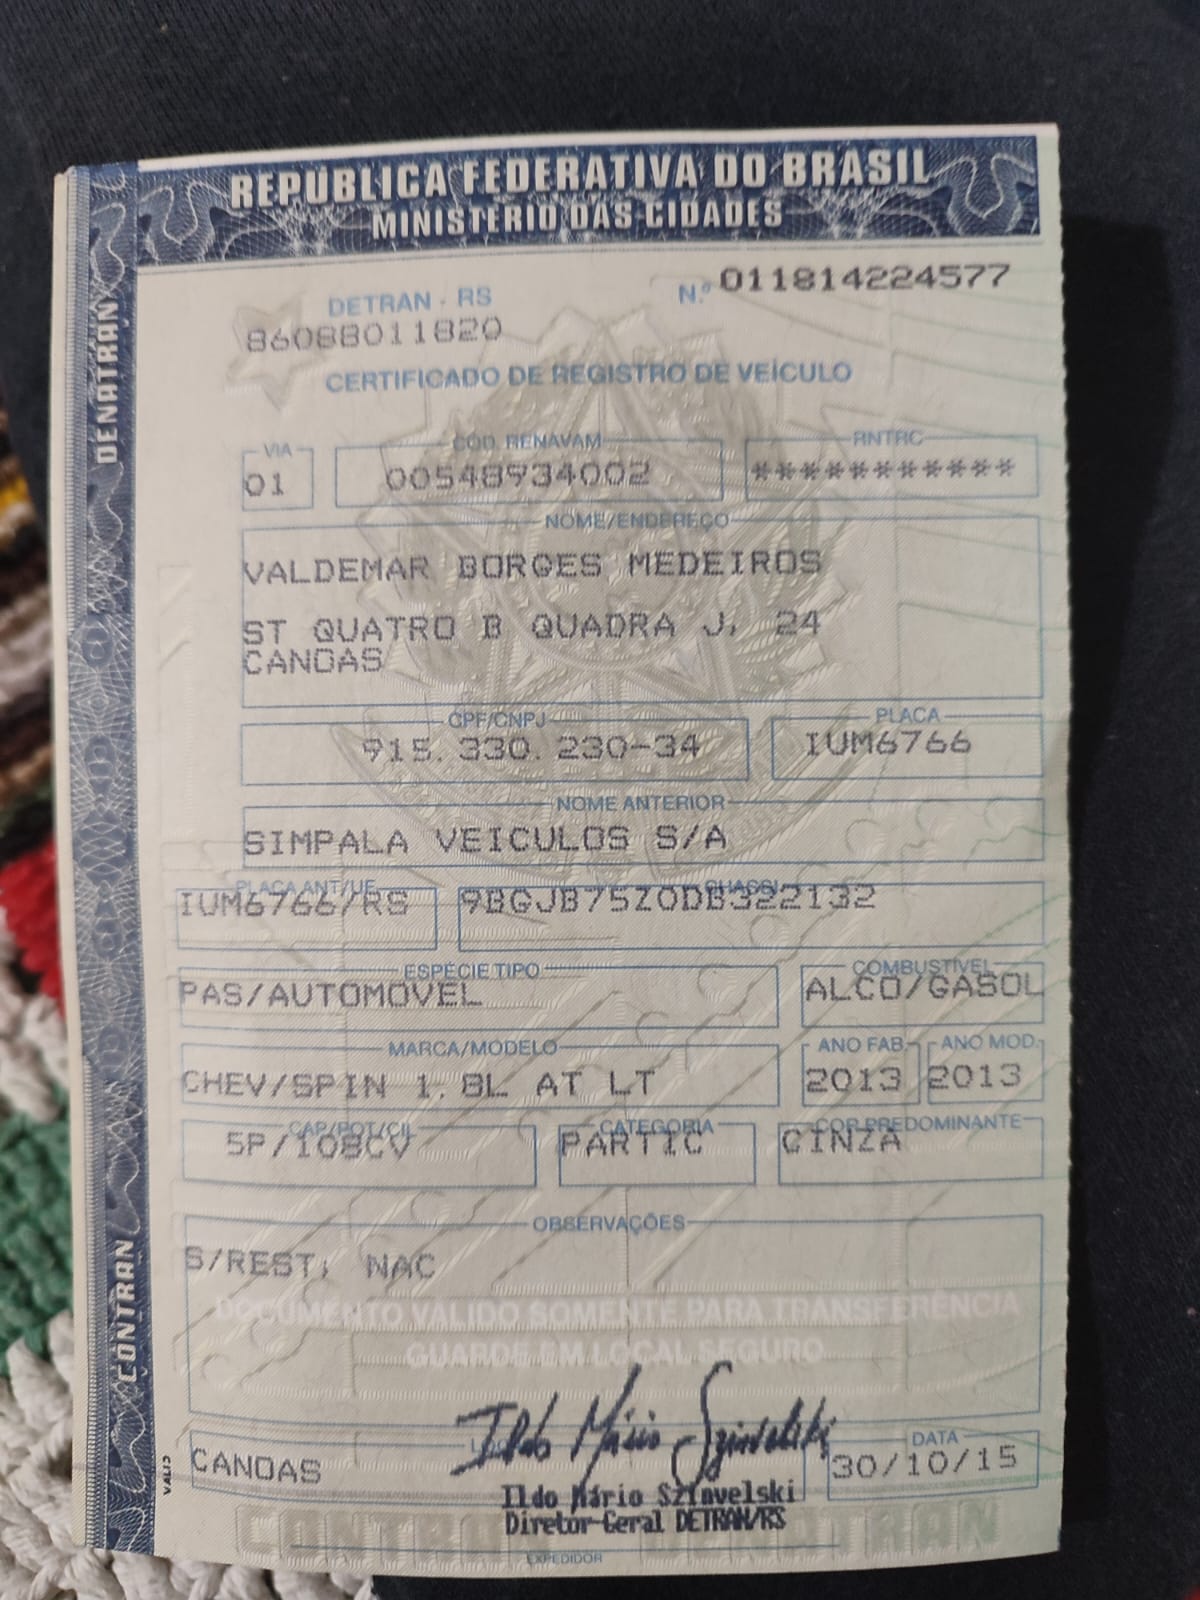 REPÚBLICA FEDERATIVA DO BRASIL
MINISTÉRIO DAS CIDADES
DENATRAN
CONTRAN
DETRAN - RS
Nº 011814224577
86088011820
CERTIFICADO DE REGISTRO DE VEÍCULO
VIA
CÓD. RENAVAM
RNTRC
01
00548934002
***********
NOME/ENDEREÇO
VALDEMAR BORGES MEDEIROS
ST QUATRO B QUADRA J, 24
CANOAS
CPF/CNPJ
PLACA
915.330.230-34
IUM6766
NOME ANTERIOR
SIMPALA VEICULOS S/A
PLACA ANT/UF
CHASSI
IUM6766/RS
9BGJB75Z0DB322132
ESPÉCIE TIPO
COMBUSTÍVEL
PAS/AUTOMOVEL
ALCO/GASOL
MARCA/MODELO
ANO FAB.
ANO MOD.
CHEV/SPIN 1.8L AT LT
2013
2013
CAP/POT/CIL
CATEGORIA
COR PREDOMINANTE
5P/108CV
PARTIC
CINZA
OBSERVAÇÕES
S/REST, NAC
DOCUMENTO VALIDO SOMENTE PARA TRANSFERÊNCIA
GUARDE EM LOCAL SEGURO
DATA
CANOAS
30/10/15
Ildo Mário Szinvelski
Ildo Mário Szinvelski
Diretor-Geral DETRAN/RS
EXPEDIDOR